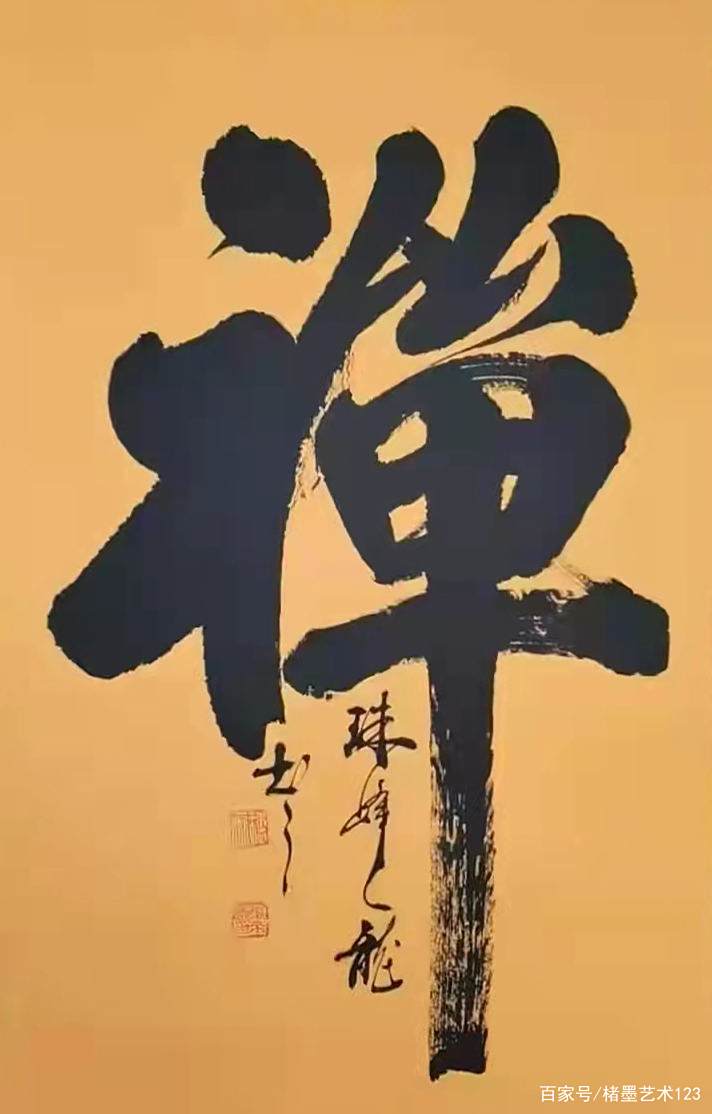 禅
珠峰之龍
书之
百家号/楮墨艺术123